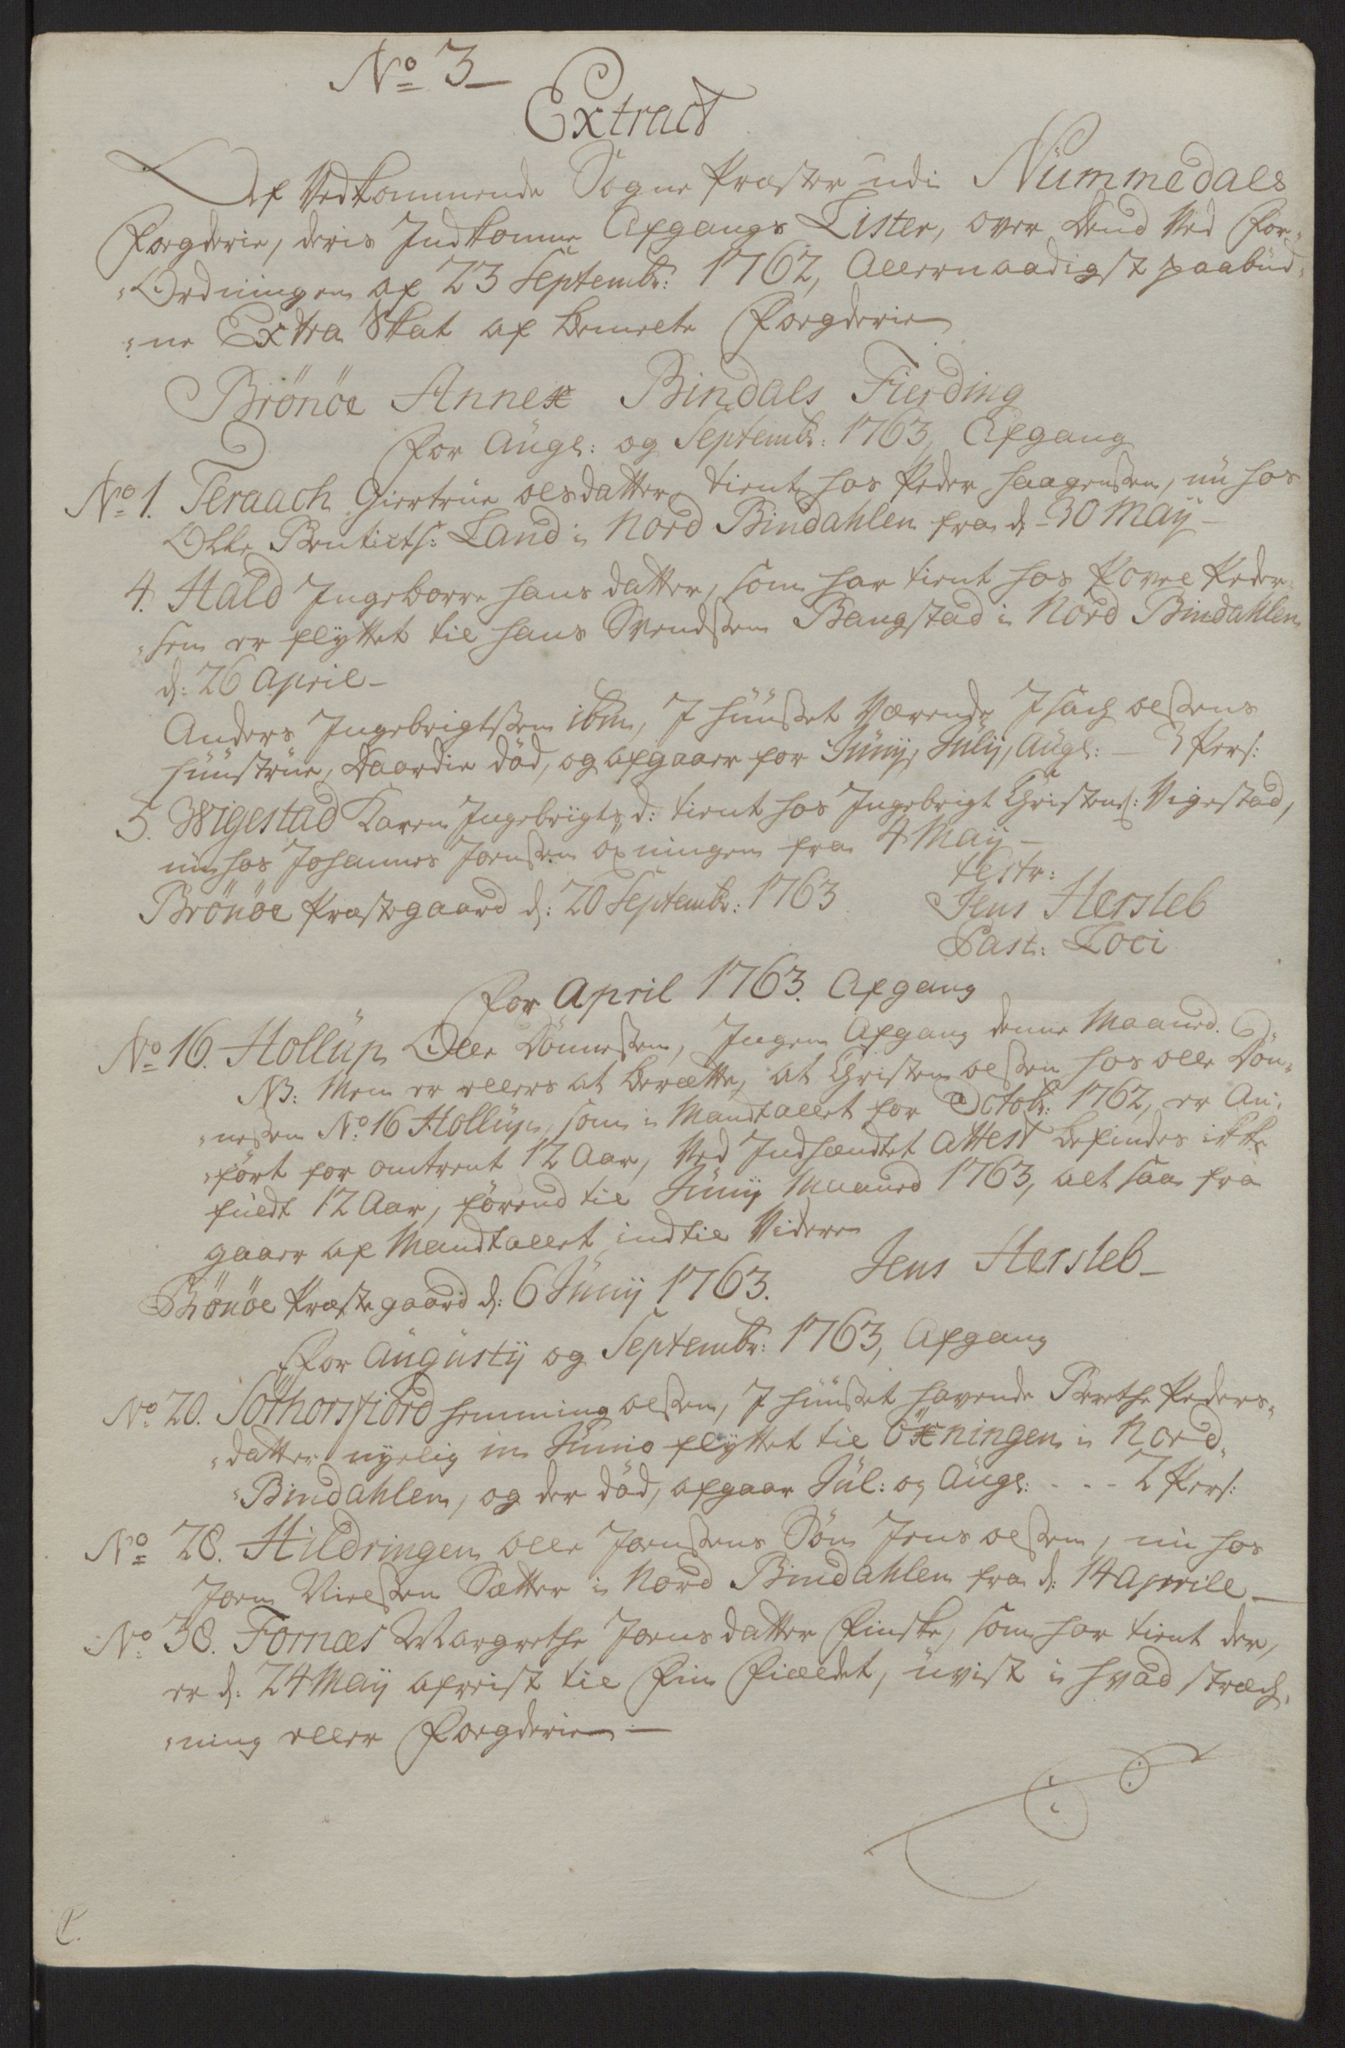 No 3
Extract
Af Vedkommende Sogne Præster udi Nummedals
Foegderie, deris Indkomne Afgangs Lister, over dend Ved For-
-Ordningen af 23 Septembr: 1762, Allernaadigst paabud-
-ne Extra Skat af bemelte Foegderie
Brönöe Annex Bindals Fierding
For Augl: og Septembr: 1763, Afgang
No 1. Teraach Giertrue olsdatter, tient hos Peder Haagenssen, nu hos
Olle Benticts: Land i Nord Bindahlen fra d: 30 May -
4. Hald Ingeborre Hansdatter, som har tient hos Povel Peder-
-sen er flyttet til Hans Svendssen Bangstad i Nord Bindahlen
d: 26 April -
Anders Ingebrigtssen ibm, I Huusset Værende Isach olssens
Huustrue, Daardie död, og afgaaer for Juny, July, Augl: - 3 Pers:
5. Wigestad Karen Ingebrigts d: tient hos Ingebrigt Christens: Vigestad,
nu hos Johannes Joenssen öxningen fra 4 May -
Brönöe Præstegaard d: 20 Septembr: 1763
testr:
Jens Hersleb
Past: Loci
For April 1763. Afgang
No 16. Hollup Olle Dönnessen, Ingen Afgang denne Maaned.
NB: Men er ellers at berette, at Christen olssen hos olle Dön-
-nessen No 16 Hollup, som i Mandtallet for Octobr: 1762, er An-
-fört for omtrent 12 Aar, Ved Indhændtet Attest befindes ikke
fuldt 12 Aar, förend til Juny Maaned 1763, alt saa fra
gaaer af Mandtallet indtil Videre
Brönöe Præstegaard d: 6 Juny 1763.
Jens Hersleb -
For Augusty og Septembr: 1763, Afgang
No 20. Söthorsfiord Hemming olssen, I Huusset havende Berthe Peders-
-datter nyelig in Junio flyttet til Öxningen i Nord-
-Bindahlen, og der död, afgaar Jul: og Augl: - - - 2 Pers:
No 28. Hildringen olle Joenssens Sön Jens olssen, nu hos
Joen Nielssen Sætter i Nord Bindahlen fra d: 14 Aprile -
No 38. Fornæs Margrethe Joensdatter Finske, som har tient der,
er d: 24 May afreist til Fin Fieldet, uvist i hvad stræch-
-ning eller Foegderie -